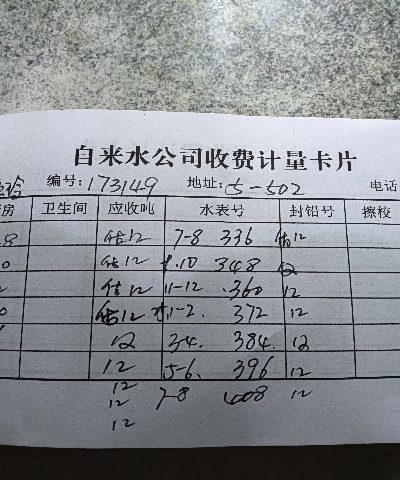 自来水公司收费计量卡片
编号:173149 地址:5-502 电话
房 卫生间 应收吨 水表号 封铅号 擦校
8 估12 7-8 336 估12
0 估12 9.10 348 12
估12 11-12 .360 12
估12 1-2. 372 12
12 3-4. 384. 12
12 5-6. 396 12
12
12 7-8 408 12
12